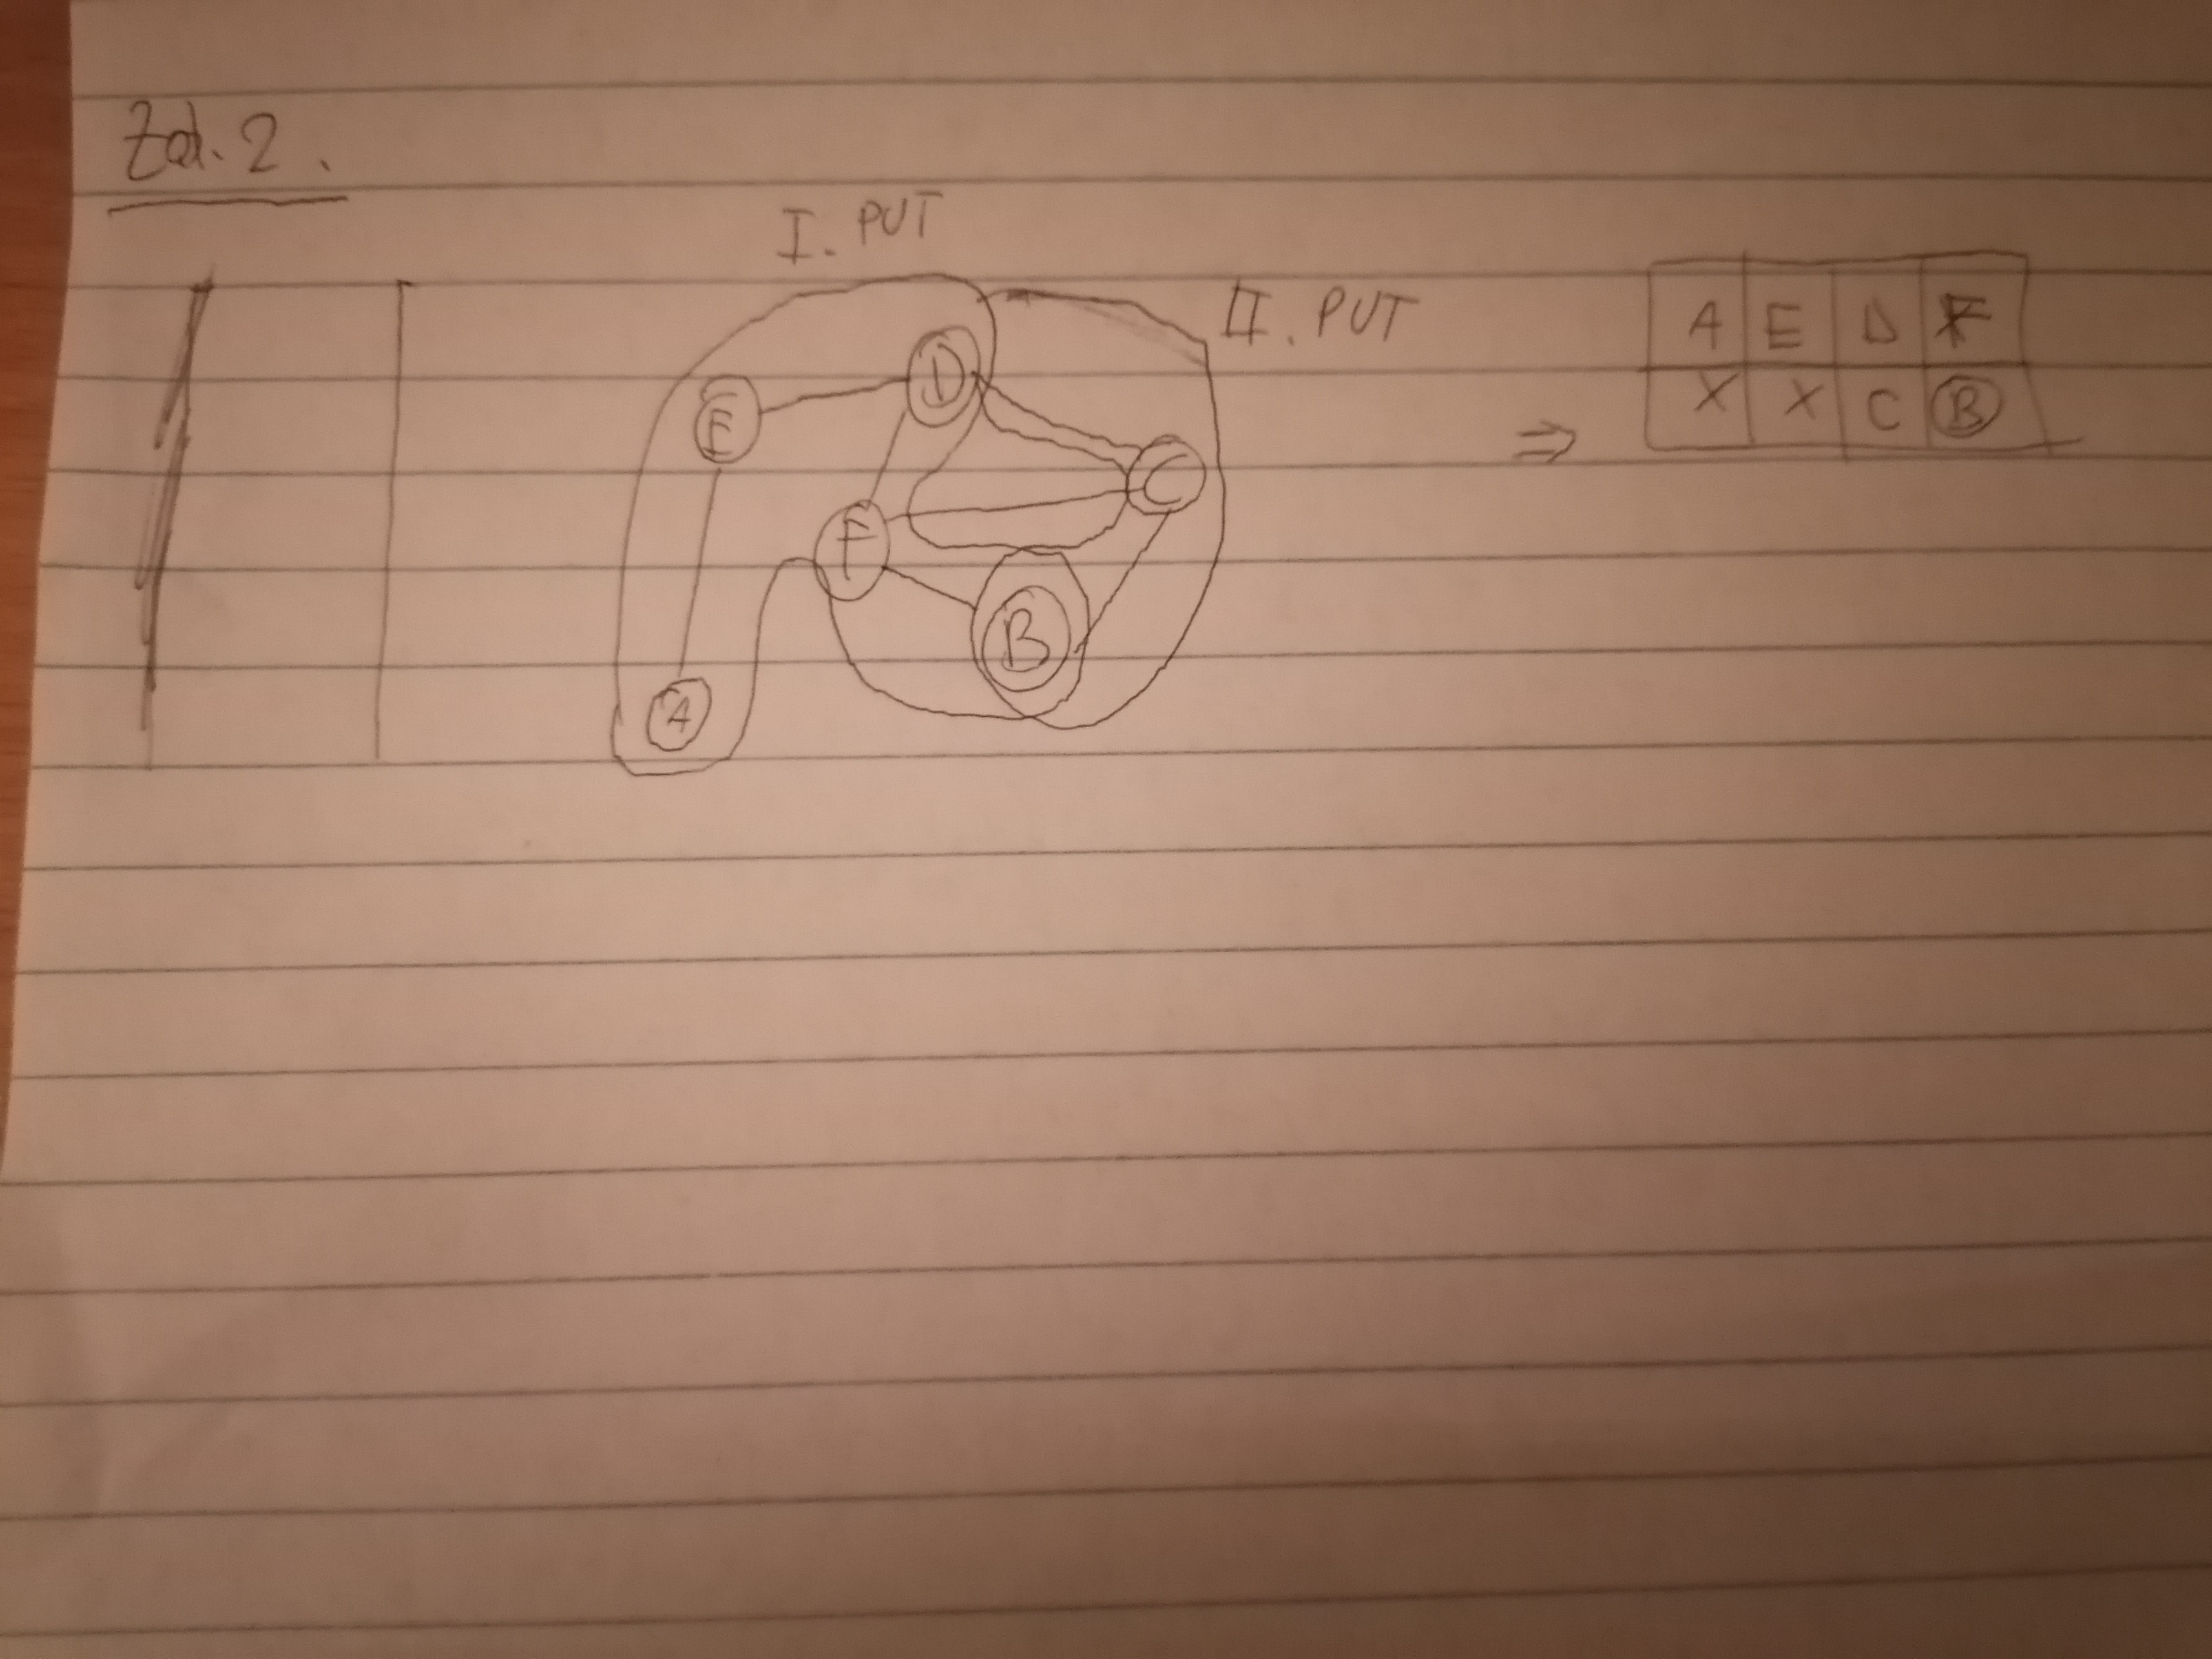 Zad. 2.
I. PUT
II. PUT
D
E
C
F
B
A
A E D F
⇒ X X C B